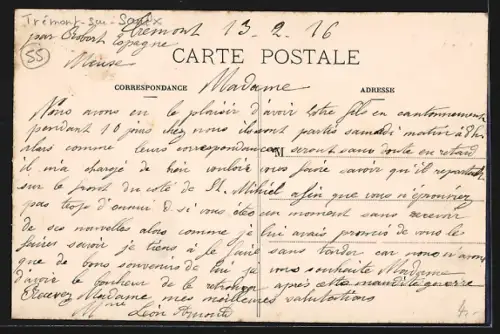 Trémont-sur-Saulx
Tremont 13-2-16
par Robert Espagne
55
Meuse
CARTE POSTALE
Madame
CORRESPONDANCE
ADRESSE
Nous avons eu le plaisir d'avoir votre fils en cantonnement
pendant 10 jours chez nous ils sont partis samedi matin à 8h
mais comme leurs correspondances seront sans doute en retard
M
il m'a chargé de bien vouloir vous faire savoir qu'il repartait
sur le front du coté de St. Mihiel afin que vous n'éprouviez
pas trop d'ennui si vous étiez un moment sans recevoir
de ses nouvelles alors comme je lui avais promis de vous le
faire savoir je tiens à le faire sans tarder car nous n'avons
que de bons souvenirs de lui je vous souhaite Madame
d'avoir le bonheur de le retrouver après cette maudite guerre
Recevez Madame mes meilleures salutations
Léon